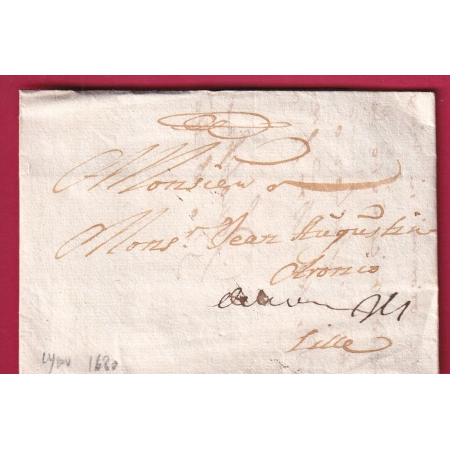 Monsieur
Mons.r Jean Augustin
Aronio
Lille
Lyon 1680